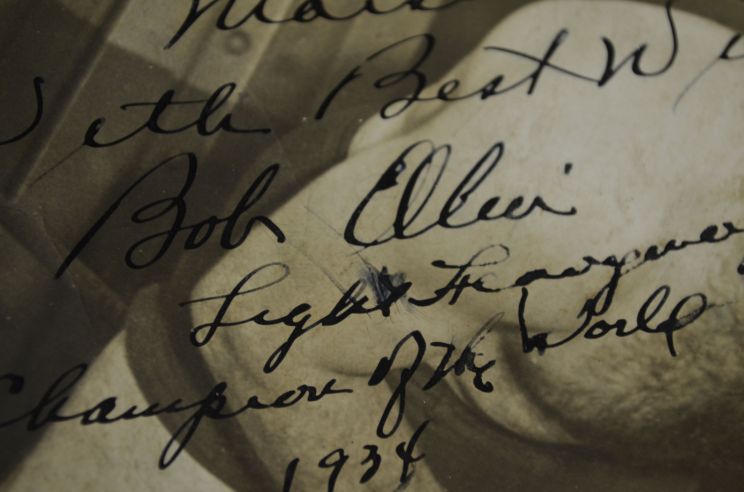 With Best Wi
Bob Olin
Light Heavywe
Champion of the World
1934